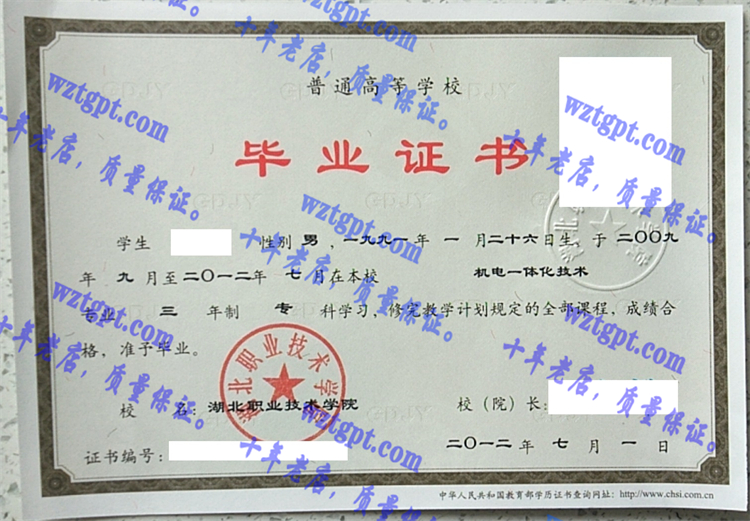 普通高等学校
毕业证书
学生 性别 男，一九九一年 一 月二十六日生，于 二〇〇九
年 九 月至二〇一二年 七 月在本校 机电一体化技术
专业 三 年制 专 科学习，修完教学计划规定的全部课程，成绩合
格，准予毕业。
校 名：湖北职业技术学院 校（院）长：
证书编号： 二〇一二 年 七 月 一 日
中华人民共和国教育部学历证书查询网址：http://www.chsi.com.cn
湖北职业技术学院
wztgpt.com
十年老店，质量保证。
wztgpt.com
十年老店，质量保证。
wztgpt.com
十年老店，质量保证。
wztgpt.com
十年老店，质量保证。
wztgpt.com
十年老店，质量保证。
wztgpt.com
十年老店，质量保证。
wztgpt.com
十年老店，质量保证。